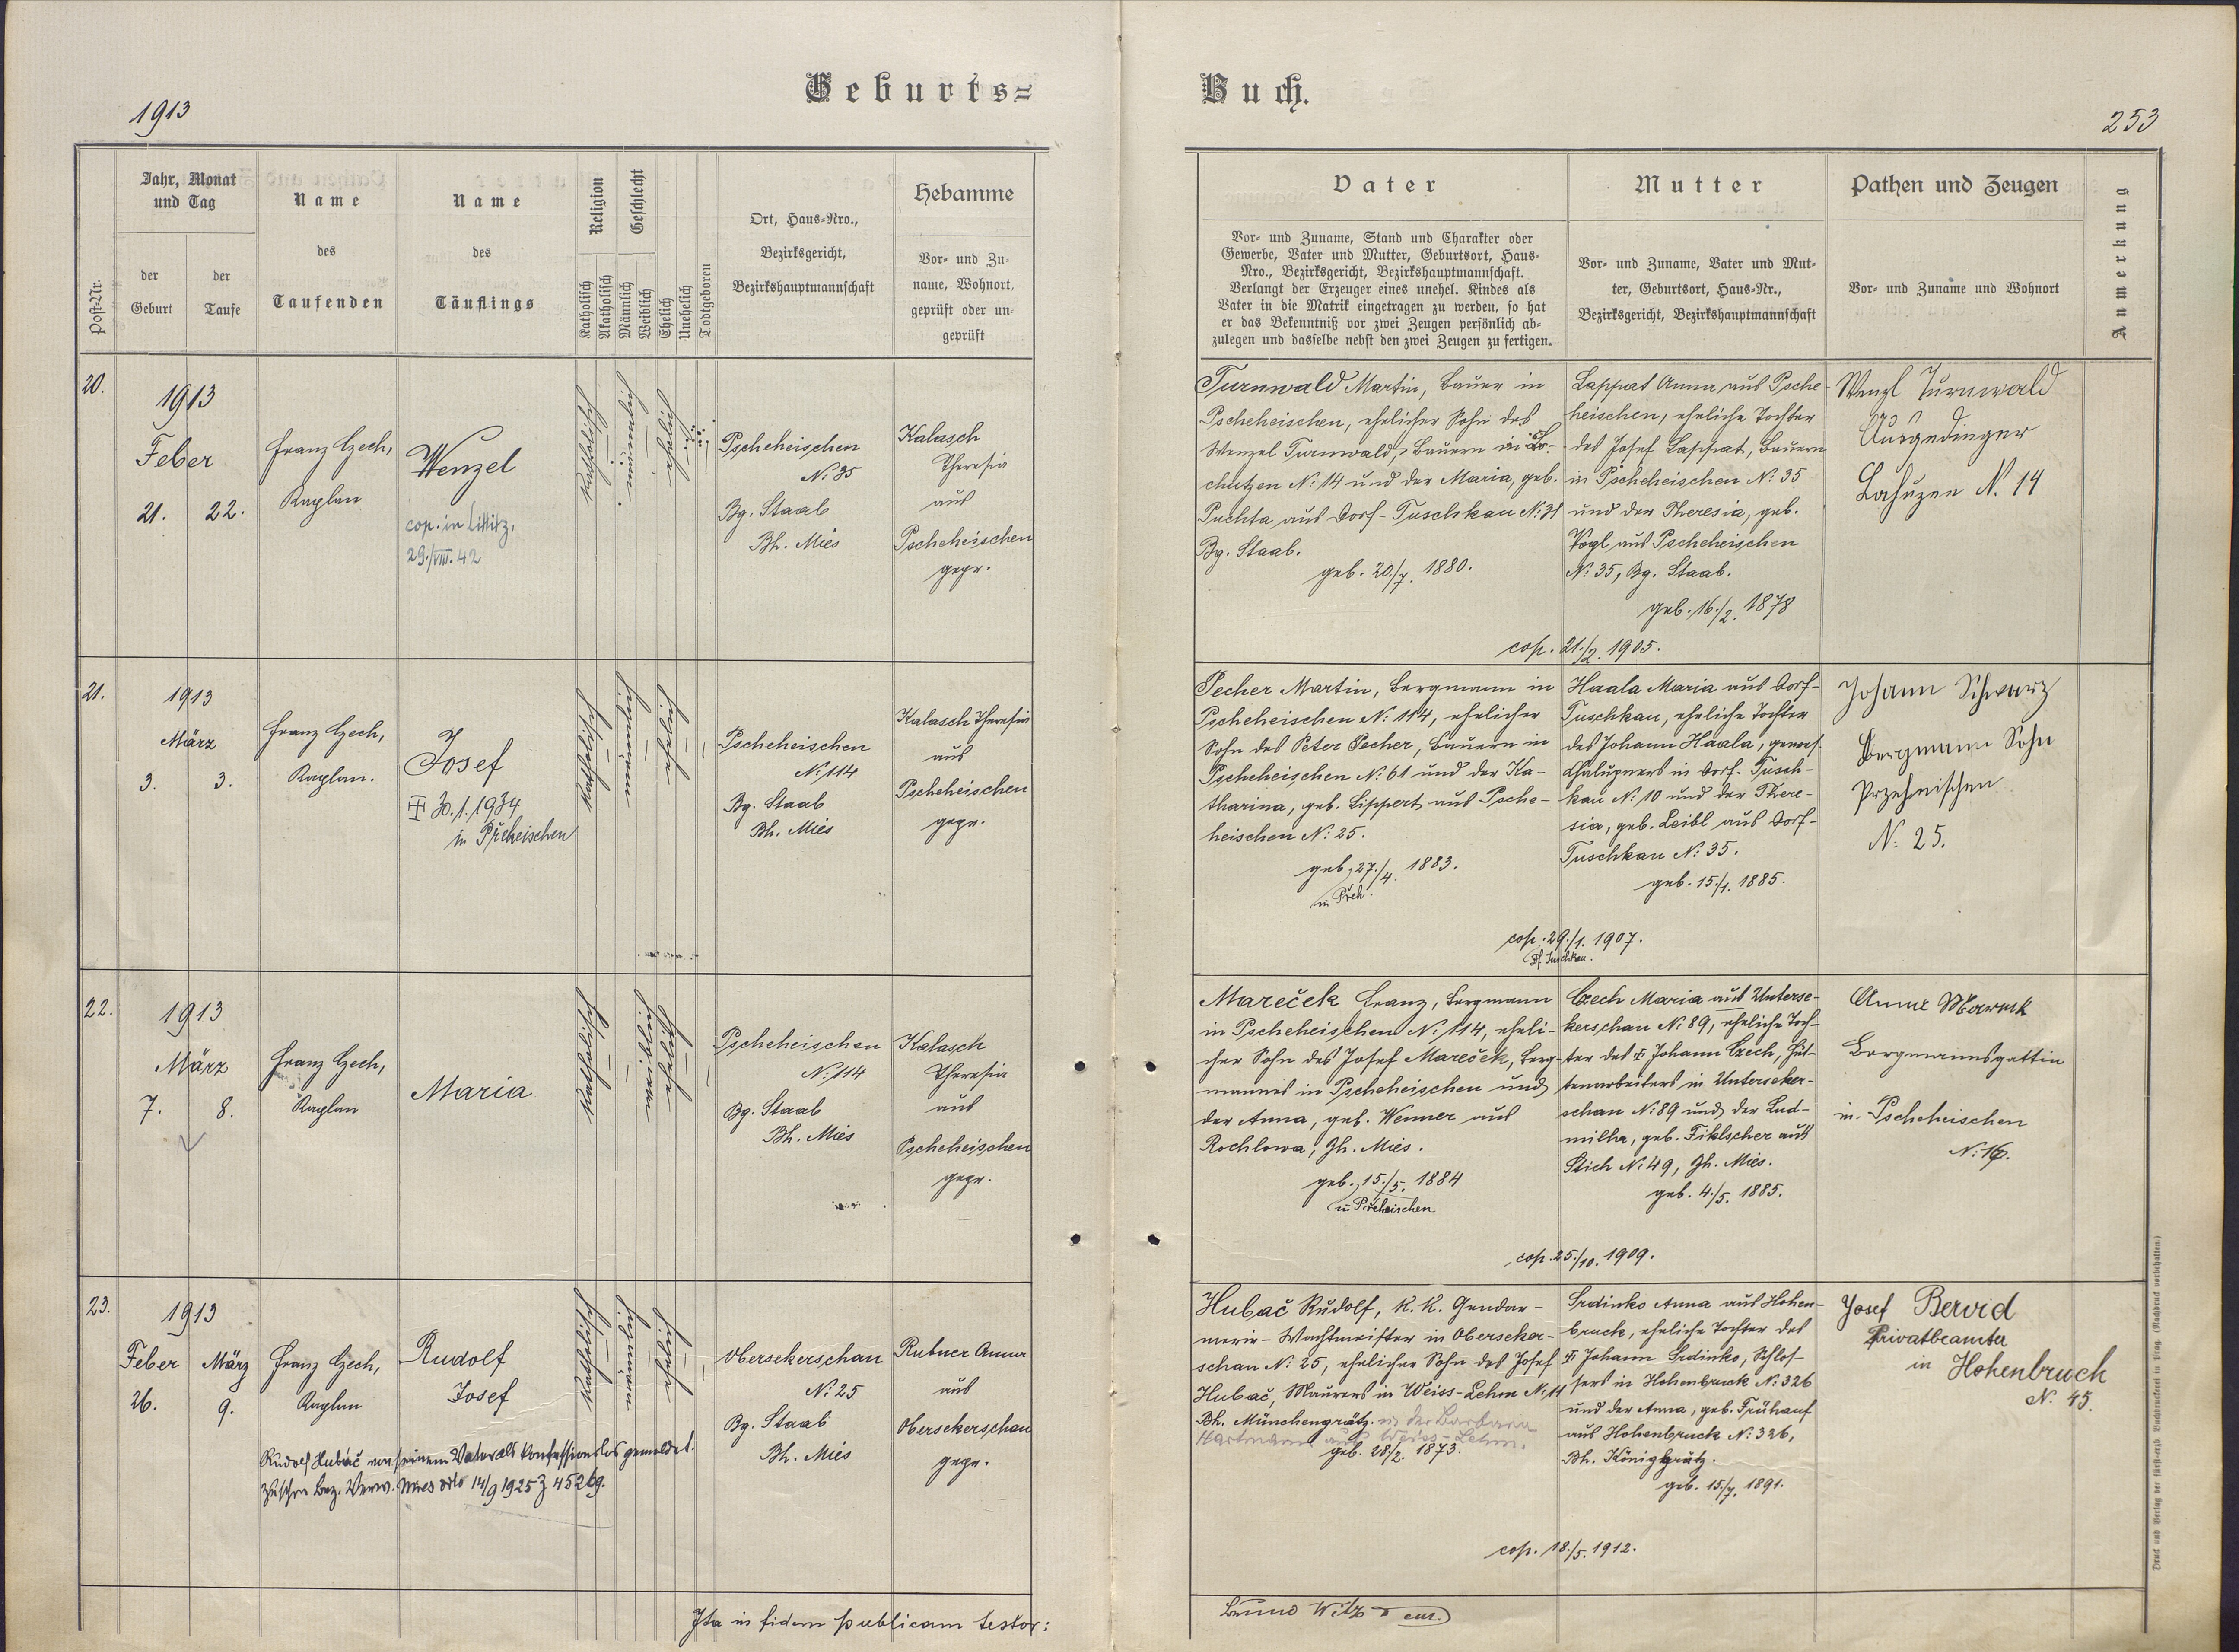 Geburts=
Buch.
1913
253
Post-Nr.
Jahr, Monat
und Tag
der
Geburt
der
Taufe
Name
des
Taufenden
Name
des
Täuflings
Religion
Katholisch
Akatholisch
Geschlecht
Männlich
Weiblich
Ehelich
Unehelich
Todtgeboren
Ort, Haus-Nro.,
Bezirksgericht,
Bezirkshauptmannschaft
Hebamme
Vor- und Zu-
name, Wohnort,
geprüft oder un-
geprüft
Vater
Vor- und Zuname, Stand und Charakter oder
Gewerbe, Vater und Mutter, Geburtsort, Haus-
Nro., Bezirksgericht, Bezirkshauptmannschaft.
Verlangt der Erzeuger eines unehel. Kindes als
Vater in die Matrik eingetragen zu werden, so hat
er das Bekenntniß vor zwei Zeugen persönlich ab-
zulegen und dasselbe nebst den zwei Zeugen zu fertigen.
Mutter
Vor- und Zuname, Vater und Mut-
ter, Geburtsort, Haus-Nr.,
Bezirksgericht, Bezirkshauptmannschaft
Pathen und Zeugen
Vor- und Zuname und Wohnort
Anmerkung
20.
1913
Feber
21. 22.
Franz Czech,
Kaplan
Wenzel
cop. in Littitz,
29./VIII. 42
katholisch
männlich
ehelich
Pscheheischen
N: 35
Bg. Staab
Bh. Mies
Kalasch
Theresia
aus
Pscheheischen
gepr.
Turnwald Martin, Bauer in
Pscheheischen, ehelicher Sohn des
Wenzel Turnwald, Bauern in Lo-
chutzen N: 14 und der Maria, geb.
Puchta aus Dorf-Tuschkau N: 31
Bg. Staab.
geb. 20./7. 1880.
Lappat Anna aus Psche-
heischen, eheliche Tochter
des Josef Lappat, Bauern
in Pscheheischen N: 35
und der Theresia, geb.
Vogl aus Pscheheischen
N: 35, Bg. Staab.
geb. 16./2. 1878
cop. 21./2. 1905.
Wenzl Turnwald
Ausgedinger
Lohuzen N. 14
21.
1913
März
3. 3.
Franz Czech,
Kaplan.
Josef
30. 1. 1934
in Přeheischen
katholisch
männlich
ehelich
Pscheheischen
N: 114
Bg. Staab
Bh. Mies
Kalasch Theresia
aus
Pscheheischen
gepr.
Pecher Martin, Bergmann in
Pscheheischen N: 114, ehelicher
Sohn des Peter Pecher, Bauern in
Pscheheischen N: 61 und der Ka-
tharina, geb. Lippert aus Psche-
heischen N: 25.
geb. 27./4. 1883.
in Přeh.
Haala Maria aus Dorf-
Tuschkau, eheliche Tochter
des Johann Haala, gewes.
Chalupners in Dorf-Tusch-
kau N: 10 und der There-
sia, geb. Leibl aus Dorf-
Tuschkau N: 35.
geb. 15./1. 1885.
cop. 29./1. 1907.
Df. Tuschkau.
Johann Schwarz
Bergmann Sohn
Przeheischen
N: 25.
22.
1913
März
7. 8.
Franz Czech,
Kaplan
Maria
katholisch
weiblich
ehelich
Pscheheischen
N: 114
Bg. Staab
Bh. Mies
Kalasch
Theresia
aus
Pscheheischen
gepr.
Mareček Franz, Bergmann
in Pscheheischen N: 114, eheli-
cher Sohn des Josef Mareček, Berg-
mannes in Pscheheischen und
der Anna, geb. Wenner aus
Rochlowa, Bh. Mies.
geb. 15./5. 1884
in Přeheischen
Czech Maria aus Unterse-
kerschan N: 89, eheliche Toch-
ter des ‡ Johann Czech, Hüt-
tenarbeiters in Unterseker-
schan N: 89 und der Lud-
milla, geb. Fiklscher aus
Stich N: 49, Bh. Mies.
geb. 4./5. 1885.
cop. 25./10. 1909.
Anna Marecek
Bergmannsgattin
in Pscheheischen
N: 16.
23.
1913
Feber März
26. 9.
Franz Czech,
Kaplan
Rudolf
Josef
katholisch
männlich
ehelich
Rudolf Hubáč von seinem Vater als konfessionslos gemeldet.
Zuschr. bez. Verw. Mies dto 14/9 1925 Z 45269.
Obersekerschan
N: 25
Bg. Staab
Bh. Mies
Rubner Anna
aus
Obersekerschan
gepr.
Hubač Rudolf, K. K. Gendar-
merie-Wachtmeister in Oberseker-
schan N: 25, ehelicher Sohn des Josef
Hubač, Maurers in Weiss-Lehm N: 11
Bh. Münchengrätz. u. der Barbara
Hartmann aus Weiss-Lehm.
geb. 28/2. 1873.
Srdinko Anna aus Hohen-
bruck, eheliche Tochter des
‡ Johann Srdinko, Schlos-
sers in Hohenbruck N: 326
und der Anna, geb. Frühauf
aus Hohenbruck N: 326,
Bh. Königgrätz.
geb. 15./7. 1891.
cop. 18./5. 1912.
Josef Bervid
Privatbeamter
in Hohenbruch
N. 45.
Ita in fidem publicam testor:
Druck und Verlag der fürst-erzb. Buchdruckerei in Prag. (Nachdruck vorbehalten.)